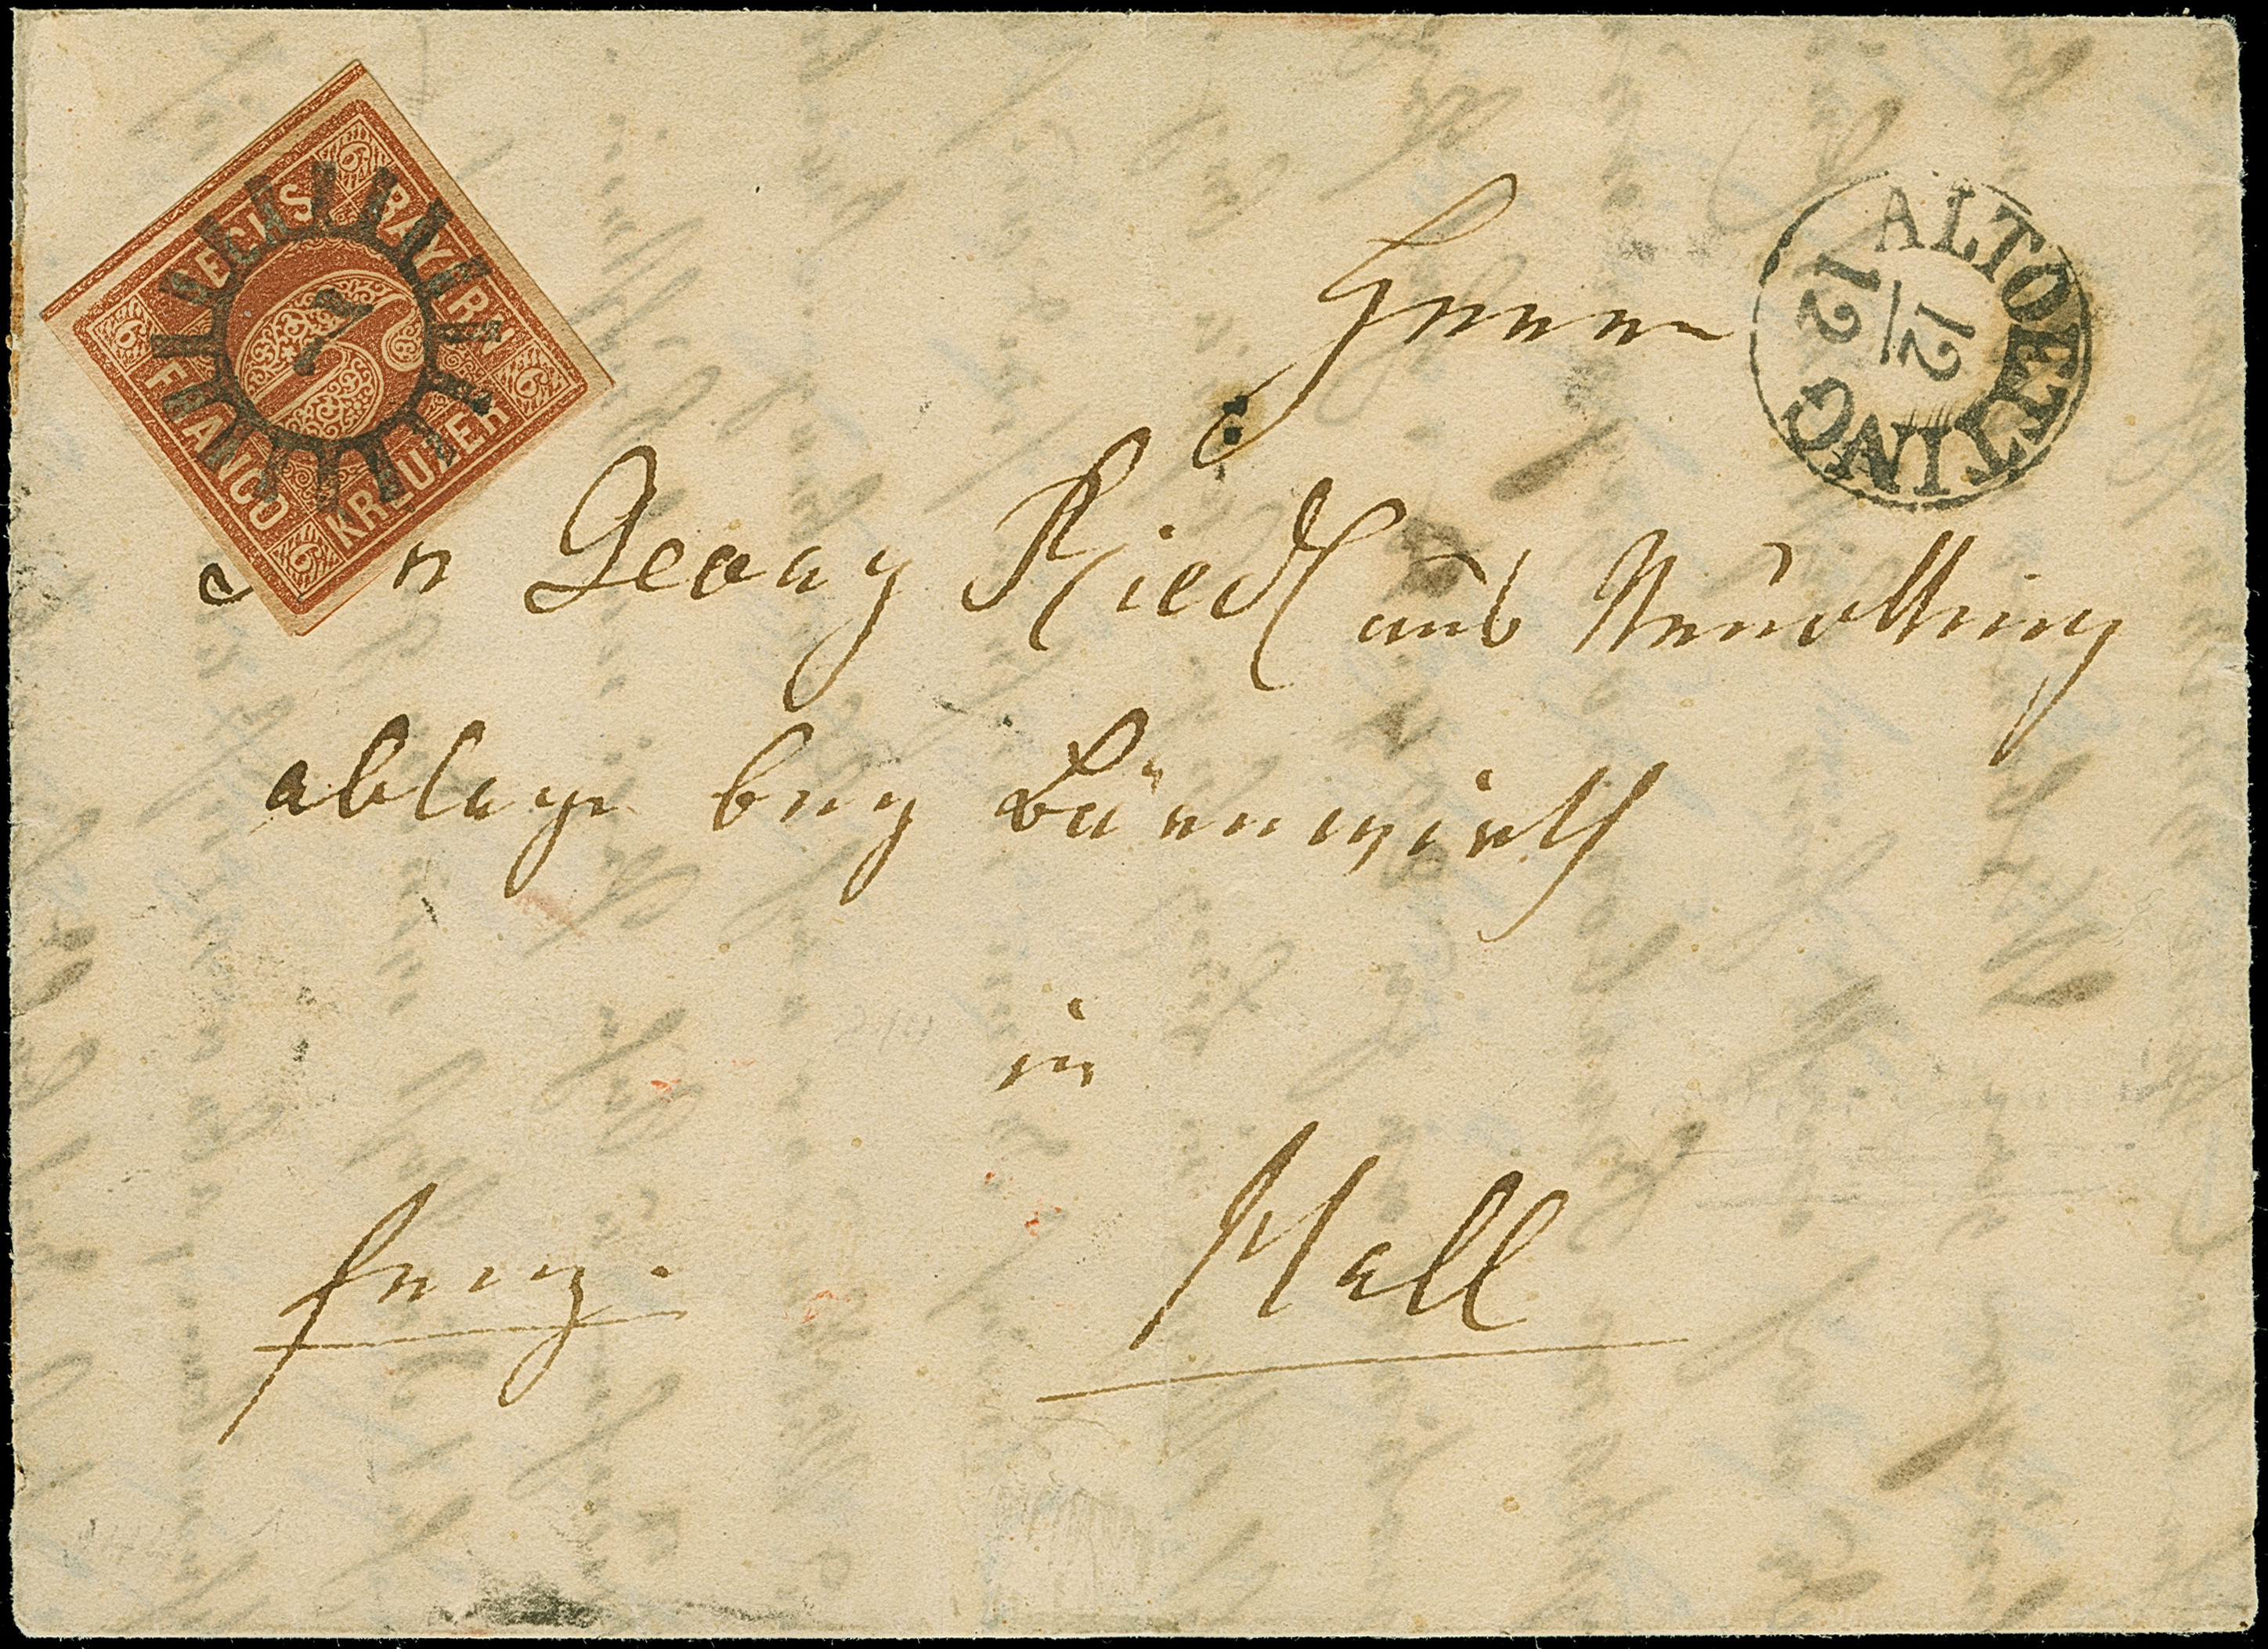 SECHS
BAYERN
FRANCO
KREUZER
6 6 6 6
6
7
ALTOETTING
12
12
Herrn
Georg Riedl aus Neuötting
ablage bey Bärnwirth
in
Hall